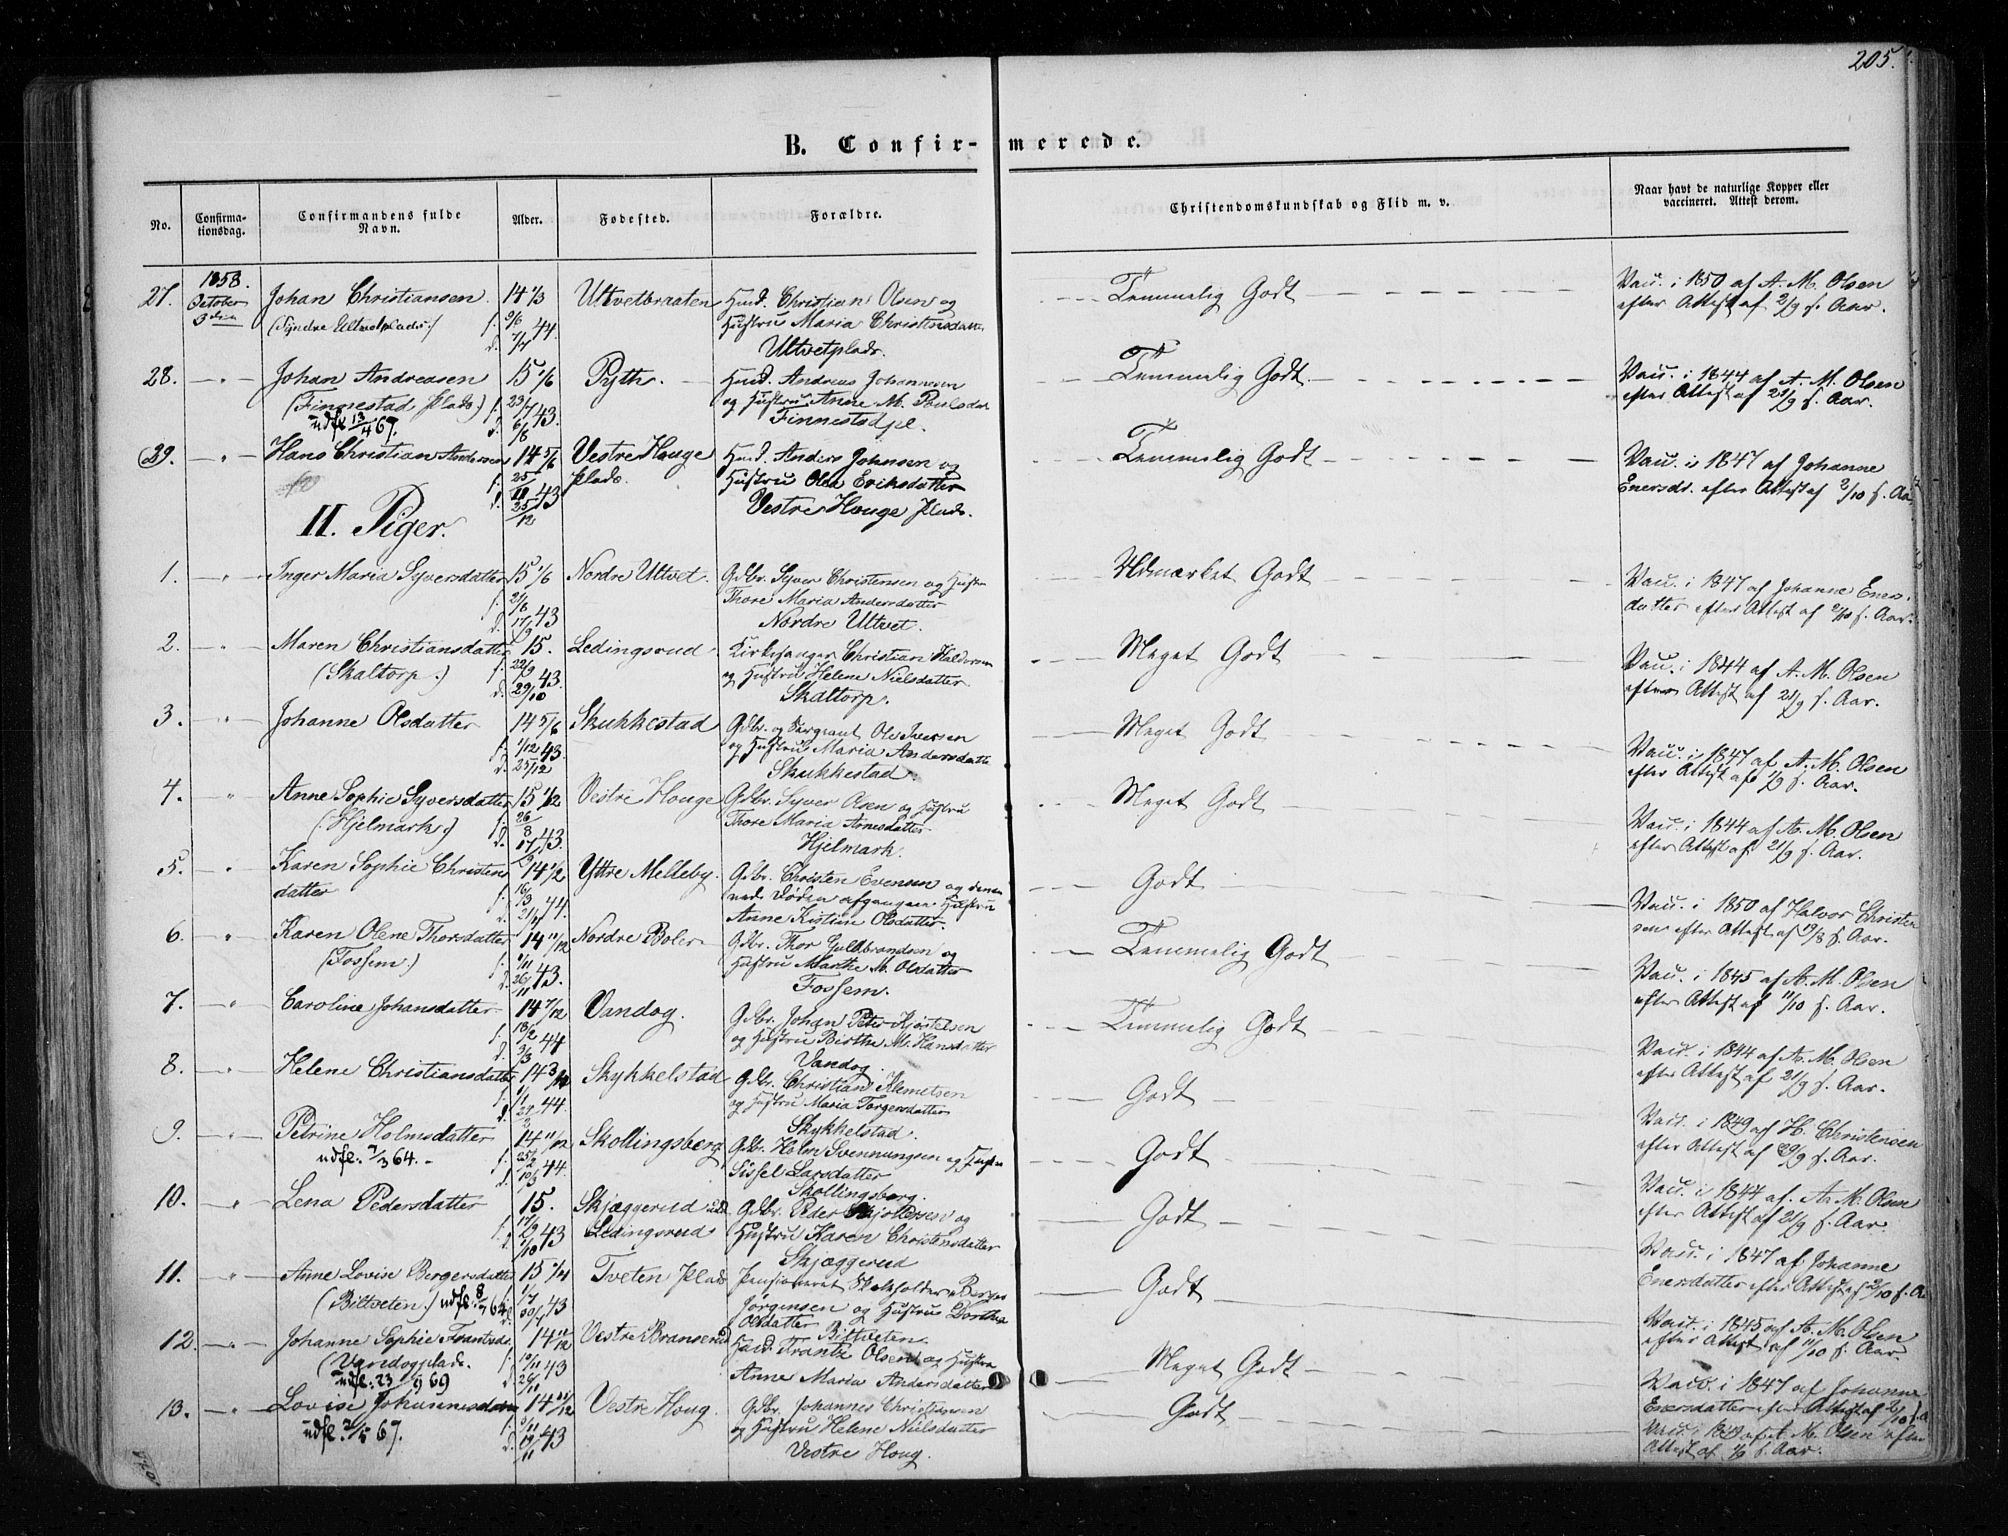 205.
B. Confirmerede.
No.
Confirma-
tionsdag.
Confirmandens fulde
Navn.
Alder.
Fødested.
Forældre.
Christendomskundskab og Flid m. v.
Naar havt de naturlige Kopper eller
vaccineret. Attest derom.
1858.
October
3die
27. Johan Christiansen 14 1/3 Ultvetbraaten Huusm. Christian Olsen og Temmelig Godt Vac. i 1850 af A. M. Olsen
(Søndre Ultvetplads.) f. 9/6 44. Hustru Maria Christensdatter efter Attest af 2/9 s. Aar.
Ultvetplads.
28. Johan Andreasen 15 1/6 Pyth. Huusm. Andreas Johannesen Temmelig Godt. Vac. i 1844 af A. M. Olsen
(Finnestad plads.) f. 23/7 43. og Hustru Anne M. Poulsdatter efter Attest af 21/9 s. Aar.
udfl. 13/4 67. d. 6/8 Finnestadpl.
29. Hans Christian Andersen 14 5/6 Vestre Houge Huusm. Anders Johnsen og Temmelig Godt Vac. i 1847 af Johanne
f. 25/11 43 plads. Hustru Olea Eriksdatter Enersdt. efter Attest af 2/10 s. Aar
d. 25/12 Vestre Houge Plads.
II. Piger.
1. Inger Maria Syversdatter 15 1/6 Nordre Ultvet. Gdbr. Syver Christensen og Hustru Udmærket Godt Vac. i 1847 af Johanne Eners-
f. 21/8 43 Thore Maria Andersdatter datter efter Attest af 2/10 s. Aar.
d. 17/9 Nordre Ultvet.
2. Maren Christiansdatter 15. Ledingsrud Kirkesanger Christian Haldorsen Meget Godt Vac. i 1844 af A. M. Olsen
(Skaltorp.) f. 22/9 43. og Hustru Helene Nielsdatter efter Attest af 21/9 s. Aar.
d. 29/10 Skaltorp.
3. Johanne Olsdatter 14 5/6 Skukkestad Gdbr. og Sergeant Ole Iversen Meget Godt Vac. i 1847 af A. M. Olsen
f. 1/12 43. og Hustru Maria Andersdatter efter Attest af 1/9 s. Aar.
d. 25/12 Skukkestad.
4. Anne Sophie Syversdatter 15 1/12 Vestre Houge Gdbr. Syver Olsen og Hustru Meget Godt Vac. i 1844 af A. M. Olsen
(Hjelmark.) f. 26/8 43. Thore Maria Arnesdatter efter Attest af 21/9 s. Aar.
d. 17/9 Hjelmark.
5. Karen Sophie Christens 14 1/2 Yttre Melleby. Gdbr. Christen Evensen og denne Godt Vac. i 1850 af Halvor Christen
datter f. 16/3 44. ved Døden afgangne Hustru sen efter Attest af 19/8 s. Aar.
d. 21/4 Anne Kistine Olsdatter.
6. Karen Olene Thorsdatter 14 11/12 Nordre Boler Gdbr. Thor Guldbrandsen og Temmelig Godt Vac. i 1845 af A. M. Olsen
(Fossem.) f. 1/11 43. Hustru Marthe M. Olsdatter efter Attest af 11/10 s. Aar.
d. 26/11 Fossem.
7. Caroline Johansdatter 14 7/12 Vandog. Gdbr. Johan Peter Kjøstelsen Temmelig Godt Vac. i 1844 af A. M. Olsen
f. 18/2 44 og Hustru Birthe M. Hansdatter efter Attest af 21/9 s. Aar.
d. 3/3 Vandog.
8. Helene Christiansdatter 14 3/4 Skykkelstad Gdbr. Christian Klemetsen Godt Vac. i 1849 af H. Christensen
f. 1/1 44. og Hustru Maria Torgersdatter efter Attest af 29/9 s. Aar.
Skykkelstad.
9. Petrine Holmsdatter 14 11/12 Skollingsberg Gdbr. Holm Svennungsen og Hustru Godt Vac. i 1844 af A. M. Olsen
udfl. 7/3 64. 44. Sissel Larsdatter efter Attest af 21/9 s. Aar.
Skollingsberg.
10. Lena Pedersdatter 15. Skjæggerud Gdbr. Peder og Godt Vac. i 1847 af Johanne
f. 17/9 43 Ledingsrud Hustru Karen Christensdatter Enersdatter efter Attest af 2/10 s. Aar
d. 1/10 Skjæggerud
11. Anne Lovise Bergersdatter 15 1/4 Tveten Plads Pensioneret Berger Godt Vac. i 1845 af A. M. Olsen
(Bittveten.) udfl. 43 Jørgensen og Hustru Dorthe efter Attest af 11/10 s. Aar.
Olsdatter Bittveten.
12. Johanne Sophie Frantsdr. 14 11/12 Vestre Branserud Huusm. Frantz Olsen og Hustru Meget Godt Vac. i 1847 af Johanne
(Vandogplads. f. 10/11 43 Anne Maria Andersdatter Enersdatter efter Attest af 2/10 s. A
udfl. 23/9 69 d. 26/11
13. Lovise Johannesdatter 14 11/12 Vestre Houg. Gdbr. Johannes Christiansen Godt Vac. i A. M. Olsen efter
udfl. 2/5 67. f. 5/11 43 og Hustru Helene Nielsdatter Attest af 1/9 s. Aar.
d. 19/11 Vestre Houg.